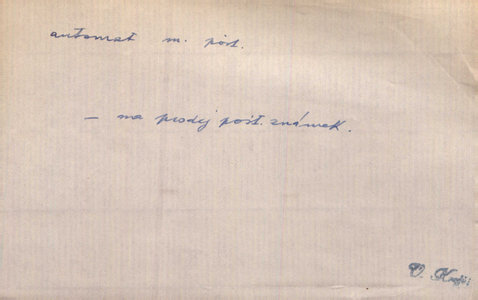 automat m. pošt.
– na prodej pošt. známek.
V.